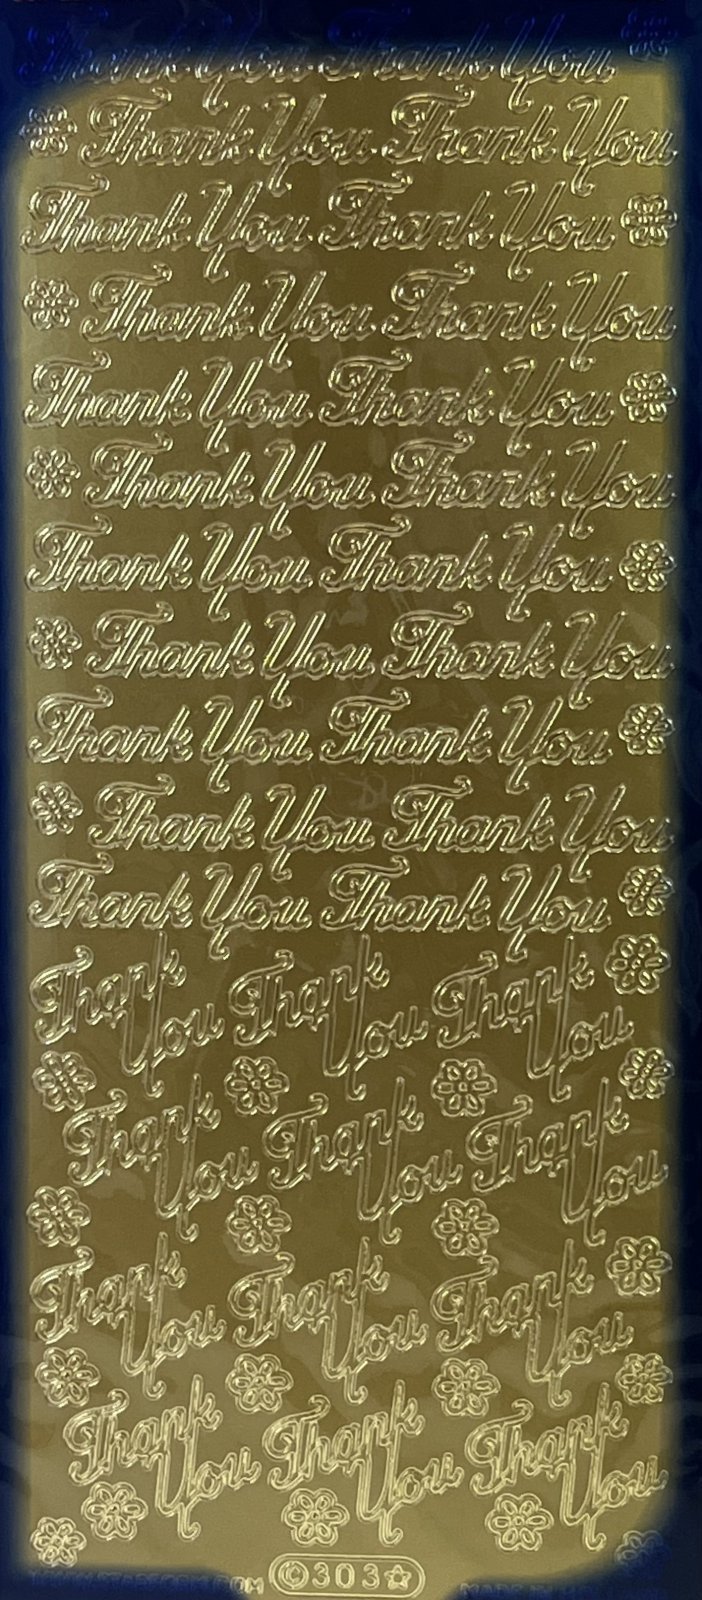 Thank You Thank You
Thank You Thank You
Thank You Thank You
Thank You Thank You
Thank You Thank You
Thank You Thank You
Thank You Thank You
Thank You Thank You
Thank You Thank You
Thank You Thank You
Thank You Thank You
Thank You Thank You Thank You
Thank You Thank You Thank You
Thank You Thank You Thank You
Thank You Thank You Thank You
©303☆ MADE IN